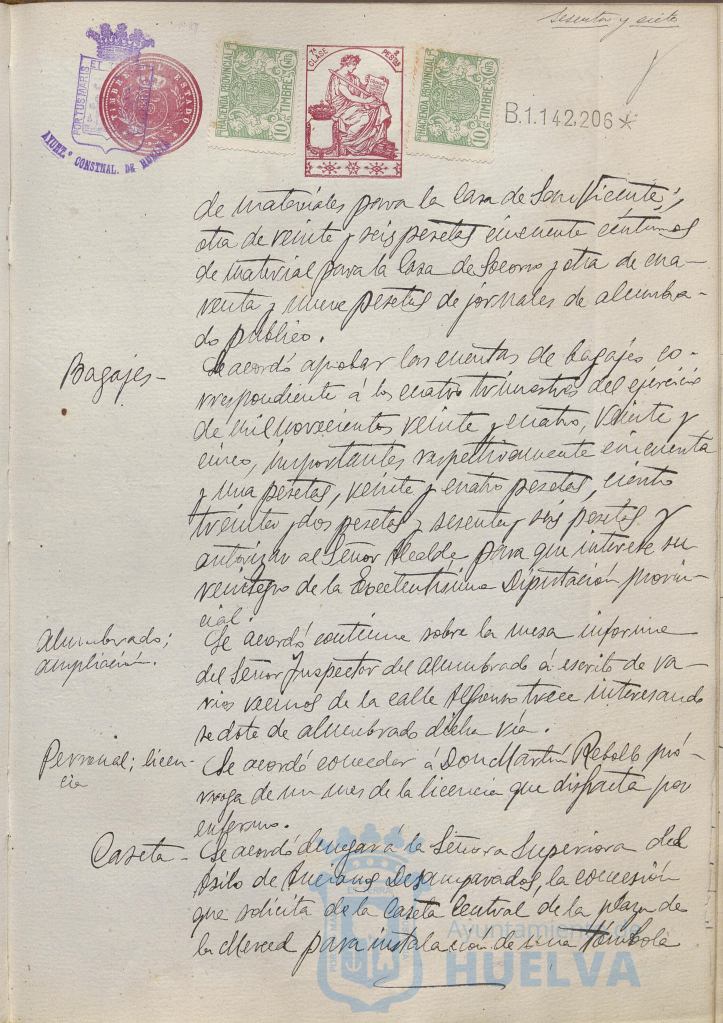 sesenta y siete
PORTUS MARIS ET
AYUNT.º CONSTNAL. DE HUELVA
TIMBRE DEL ESTADO
HACIENDA PROVINCIAL
10 TIMBRE
7ª CLASE 3 PESTAS
HACIENDA PROVINCIAL
TIMBRE 10
B.1.142,206*
de materiales para la Casa de San Vicente;
otra de veinte y seis pesetas cincuenta céntimos
de material para la Casa de Socorro y otra de no-
venta y nueve pesetas de jornales de alumbra-
do público.
Bagajes -
Se acordó aprobar las cuentas de bagajes co-
rrespondiente á los cuatro trimestres del ejercicio
de mil novecientos veinte y cuatro, veinte y
cinco, importantes respectivamente cincuenta
y una pesetas, veinte y cuatro pesetas, ciento
treinta y dos pesetas y sesenta y seis pesetas y
autorizar al Señor Alcalde para que interese su
reintegro de la Excelentísima Diputación provin-
cial.
Alumbrado;
ampliación.
Se acordó continue sobre la mesa informe
del Señor Inspector del alumbrado á escrito de va-
rios vecinos de la calle Alfonso trece interesando
se dote de alumbrado dicha vía.
Personal; licen-
cia
Se acordó conceder á Don Martín Rebollo pró-
rroga de un mes de la licencia que disfruta por
enfermo.
Caseta -
Se acordó denegar á la Señora Superiora del
Asilo de Ancianos Desamparados, la concesión
que solicita de la Caseta Central de la plaza de
la Merced para instalación de una Tómbola
Ayuntamiento de
HUELVA